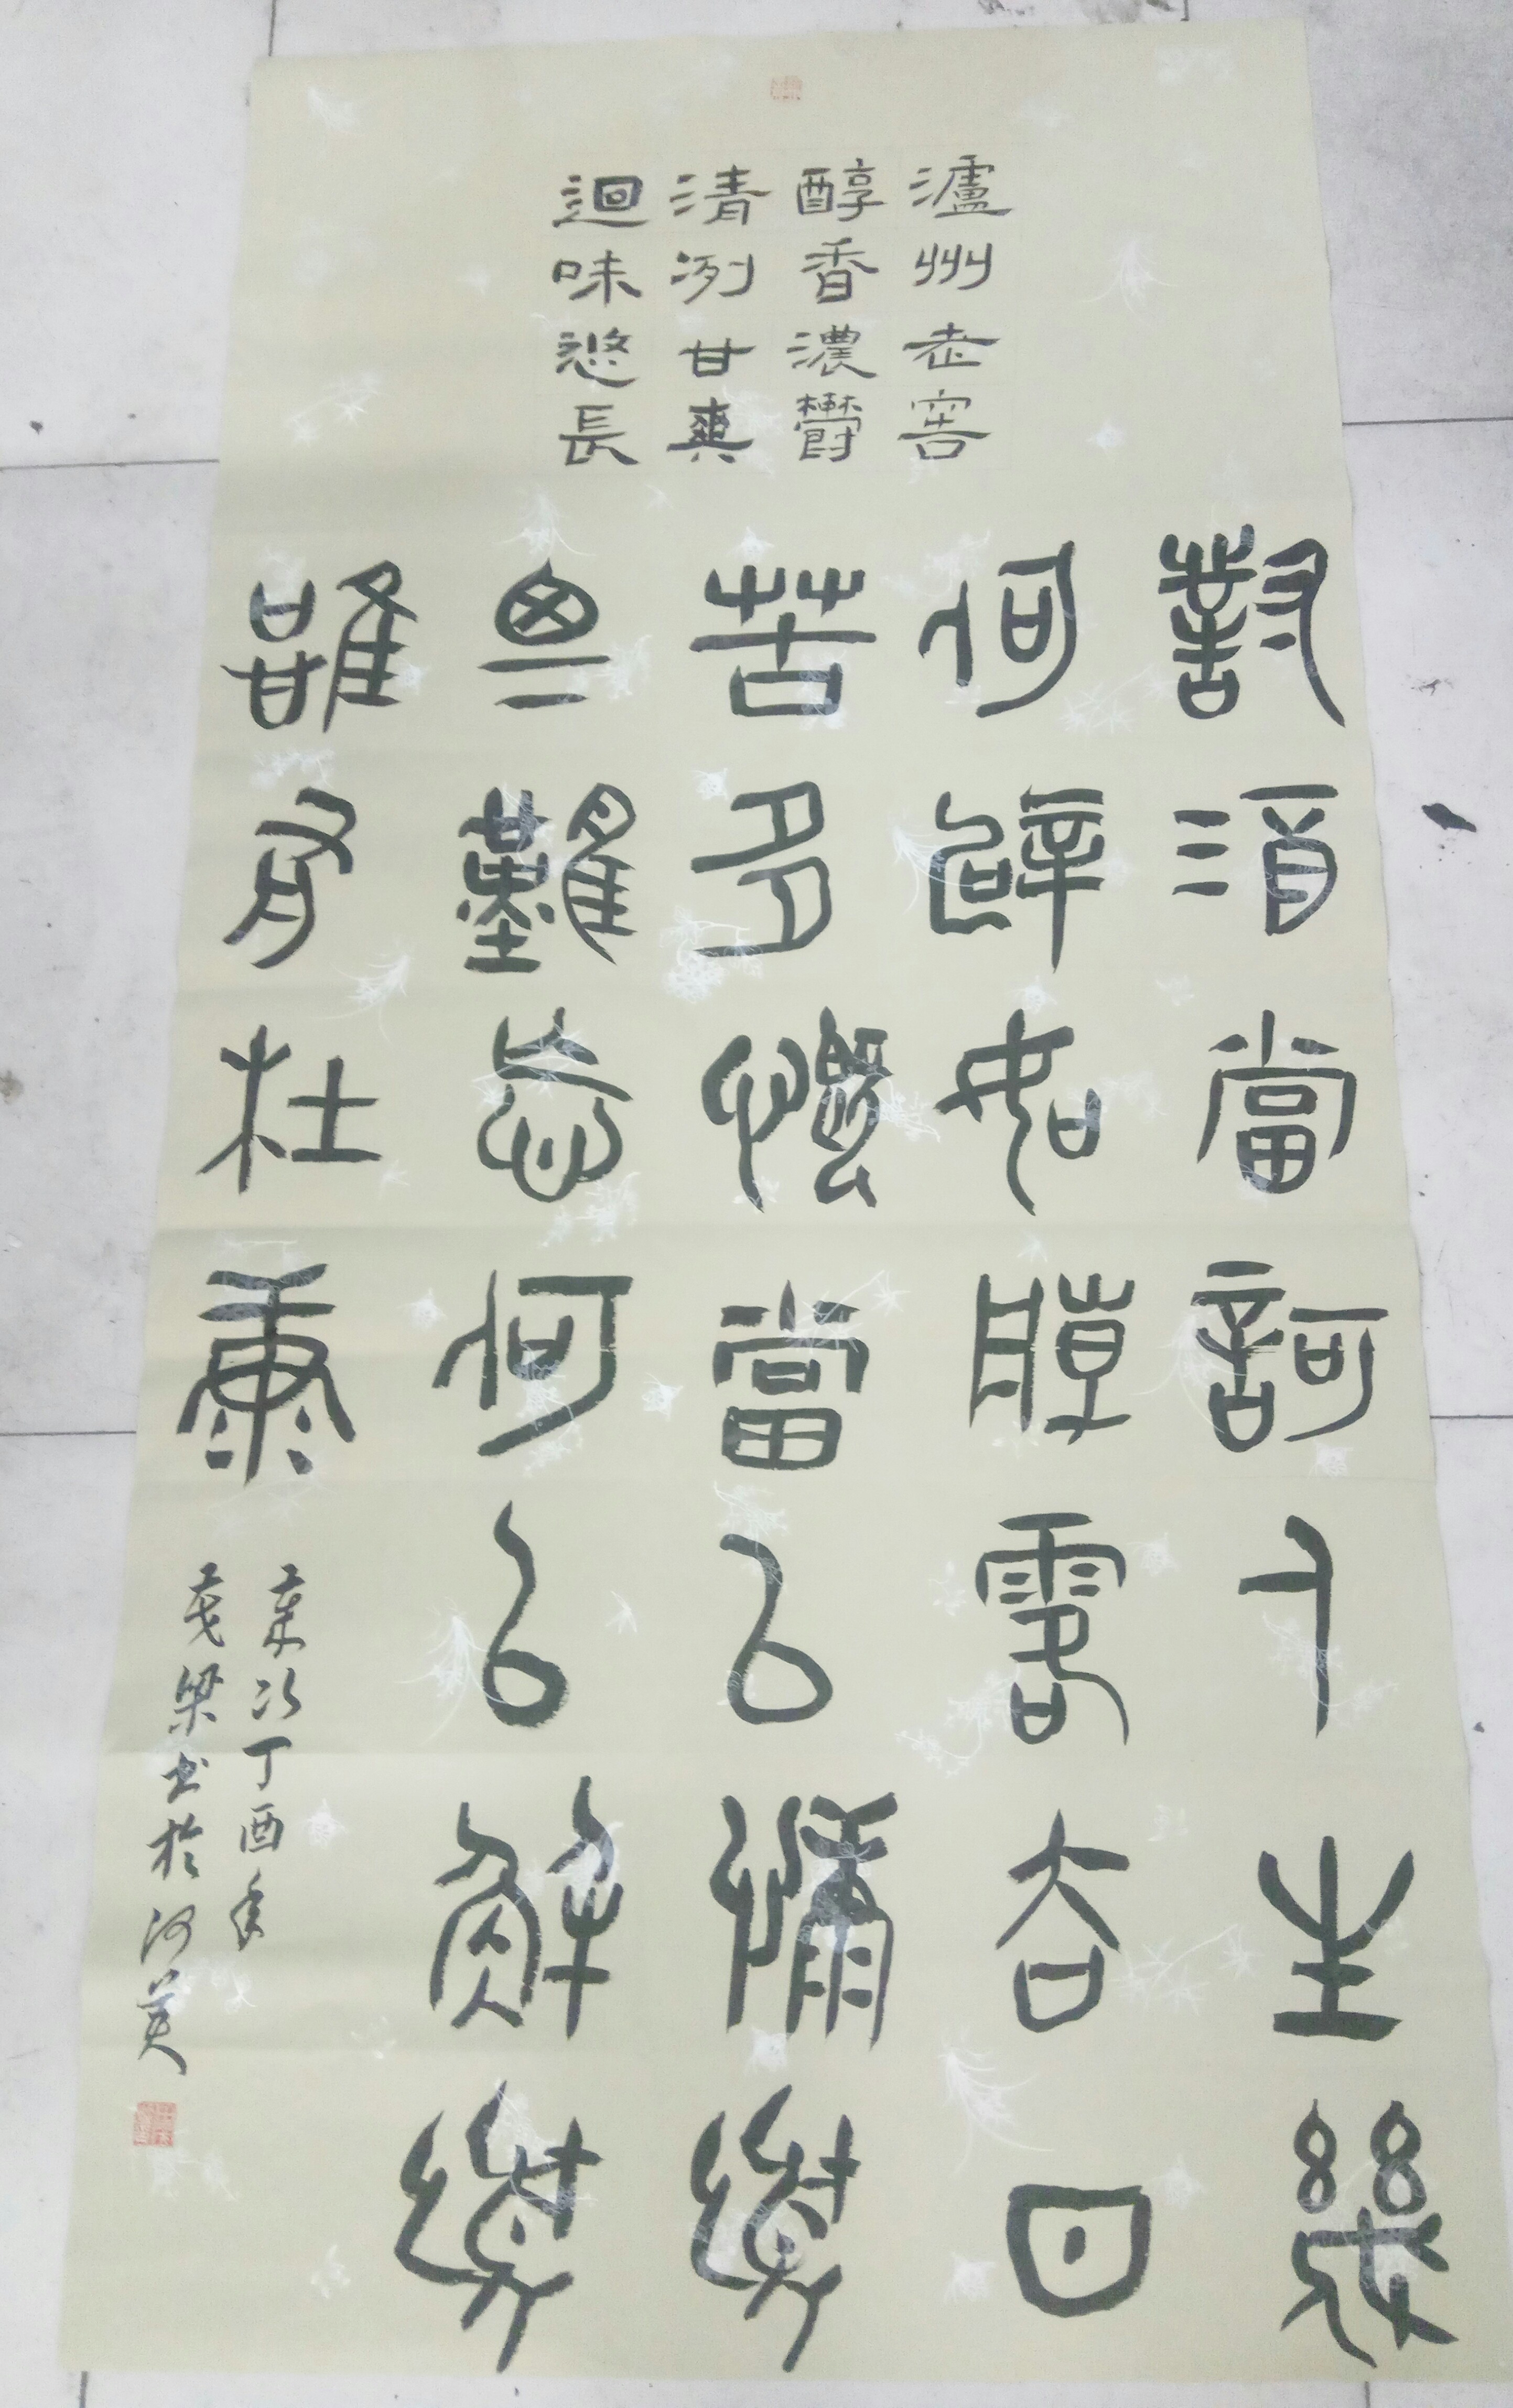 瀘州老窖
醇香濃欝
清冽甘爽
迴味悠長
對酒當訶人生幾
何辟如朝露去日
苦多慨當以慷憂
思難忘何以解憂
雖有杜康
歲次丁酉年
梁书於河